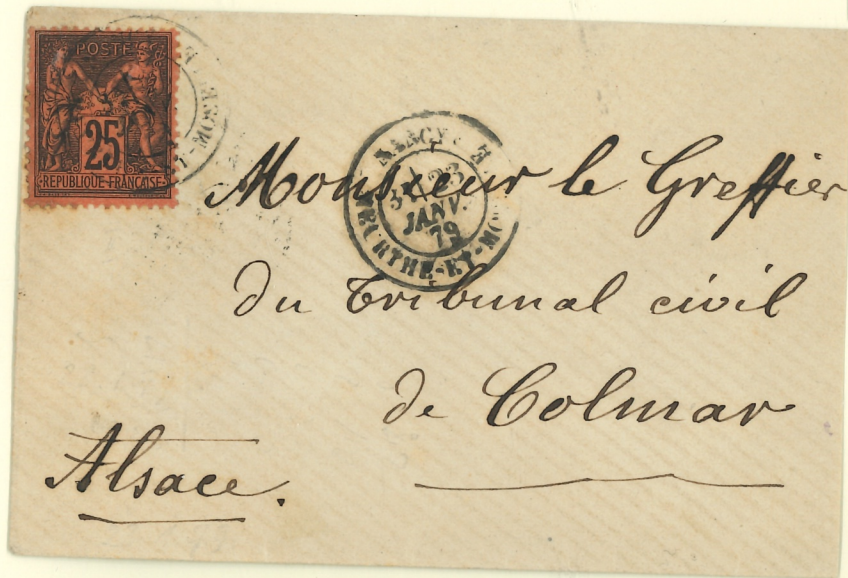 POSTE
25
REPUBLIQUE FRANÇAISE
NANCY
3E 23
JANV.
79
MEURTHE-ET-MO
Monsieur le Greffier
du Tribunal civil
de Colmar
Alsace.